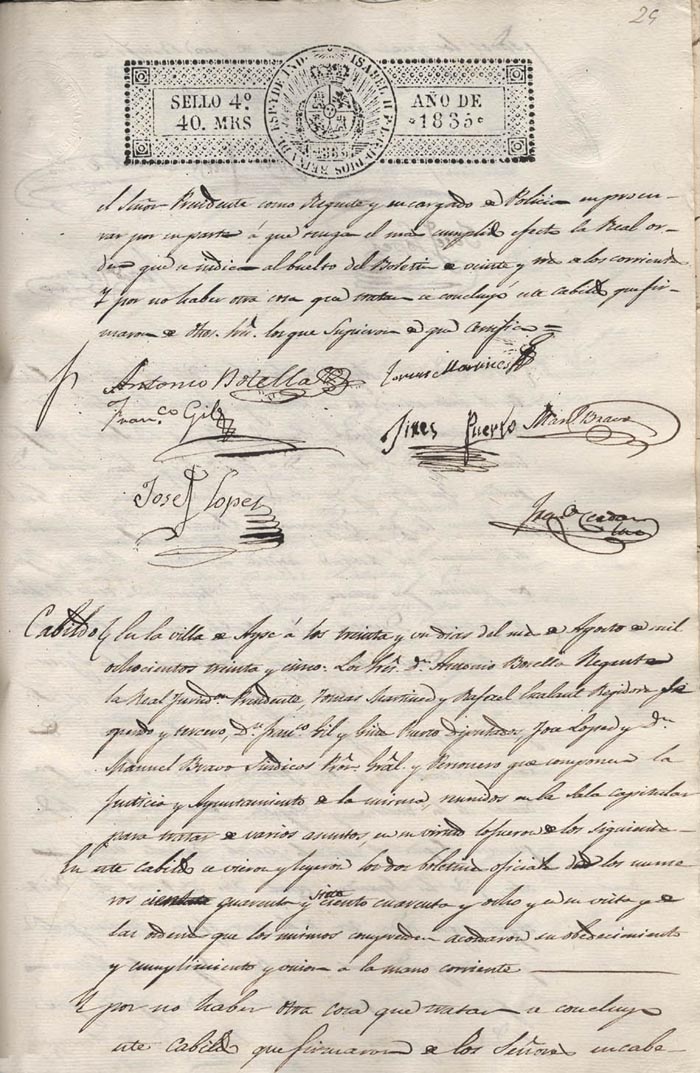 29
SELLO 4º
40. MRS
ISABEL II P. L. G. D DIOS REINA DE ESP. Y DE IND.
1835
AÑO DE
1835
el Señor Presidente como Regente y encargado de Policia en procu-
rar por su parte á que tenga el mas cumplido efecto la Real or-
den que se indica al buelto del Boletin de veinte y tres de los corrientes
Y por no haber otra cosa que tratar se concluyó este cabildo que fir-
maron de dhos. Sres. los que Supieron de que Certifico =
Antonio Botella
Tomas Martinez
Franco Gil
Jines Puerto
Manl Bravo
Josef Lopez
Cabildo En la villa de Aspe á los treinta y un dias del mes de Agosto de mil
ochocientos treinta y cinco. Los Sres. Dn. Antonio Botella Regente
la Real Jurisdon Presidente, Tomas Martinez y Rafael Regidores Se-
gundo y tercero, Dn. Franco Gil y Gines Puerto Diputados, Jose Lopez y Dn.
Manuel Bravo Sindicos Pror. Gral. y Personero que componen la
Justicia y Ayuntamiento de la misma, reunidos en la Sala capitular
para tratar de varios asuntos en su virtud lo fueron de los siguientes
En este cabildo se vieron y leyeron los dos boletines oficiales de los nume-
ros ciento cuarenta y siete ciento cuarenta y ocho y en su vista y de
las ordenes que los mismos comprenden acordaron su obedecimiento
y cumplimiento y union á la mano corriente
Y por no haber otra cosa que tratar se concluyó
este Cabildo que firmaron de los Señores en cabe-